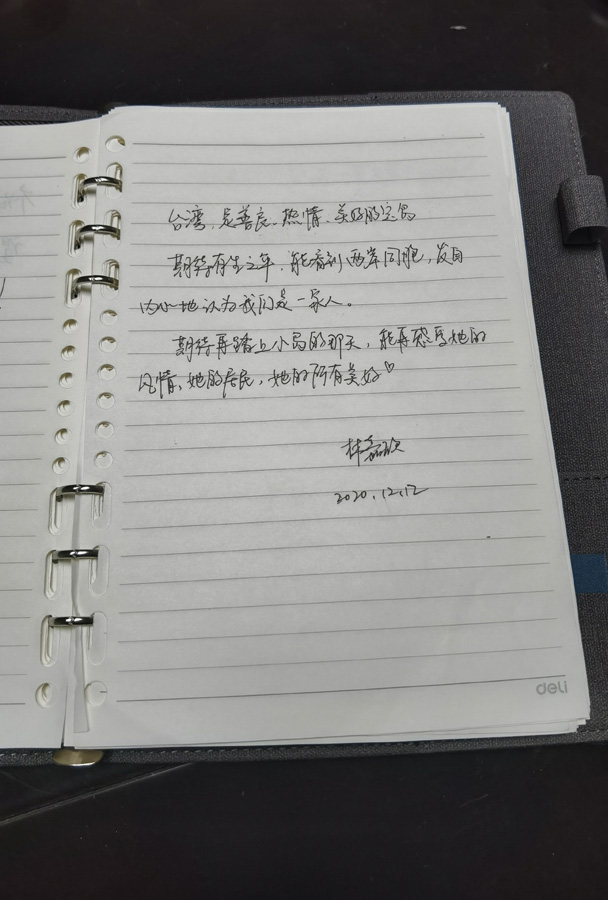 台湾,是善良、热情、美好的宝岛
期待有生之年,能看到两岸同胞,发自
内心地认为我们是一家人。
期待再踏上小岛的那天,能再感受她的
风情,她的居民,她的所有美好♡
林嘉欣
2020.12.12
deli